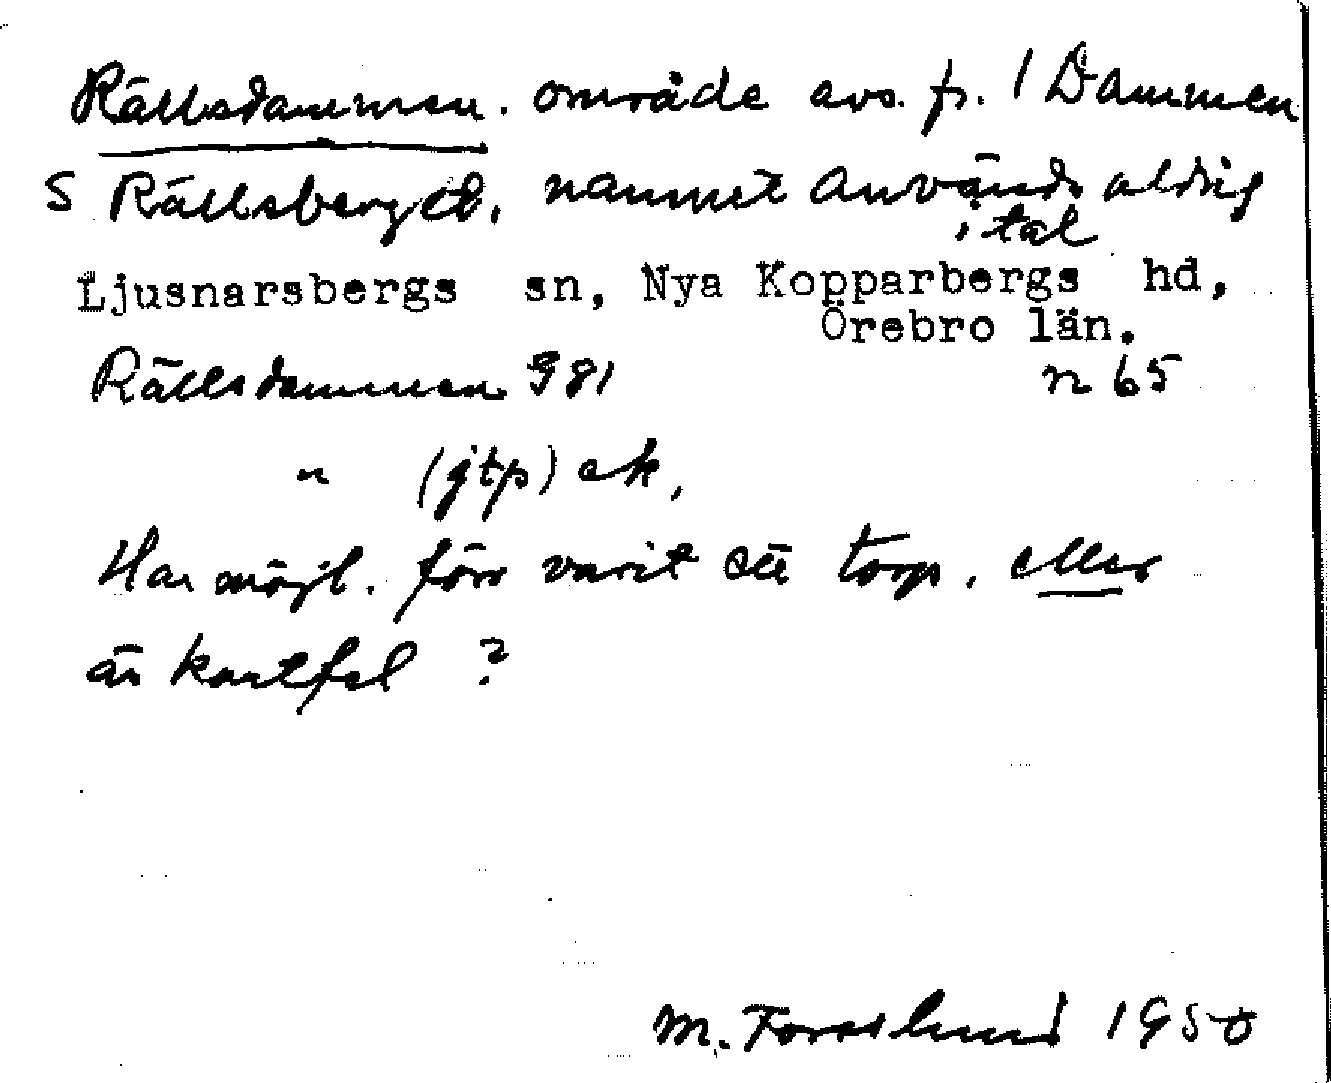 Rällsdammen. område avs. fr. 1 Dammen
S Rällsberget. namnet används aldrig
i tal
Ljusnarsbergs sn, Nya Kopparbergs hd,
Örebro län.
Rällsdammen 981 n 65
" (jtp) ek,
Har möjl. förr varit ett torp. eller
är kartfel ?
M. Forsslund 1950